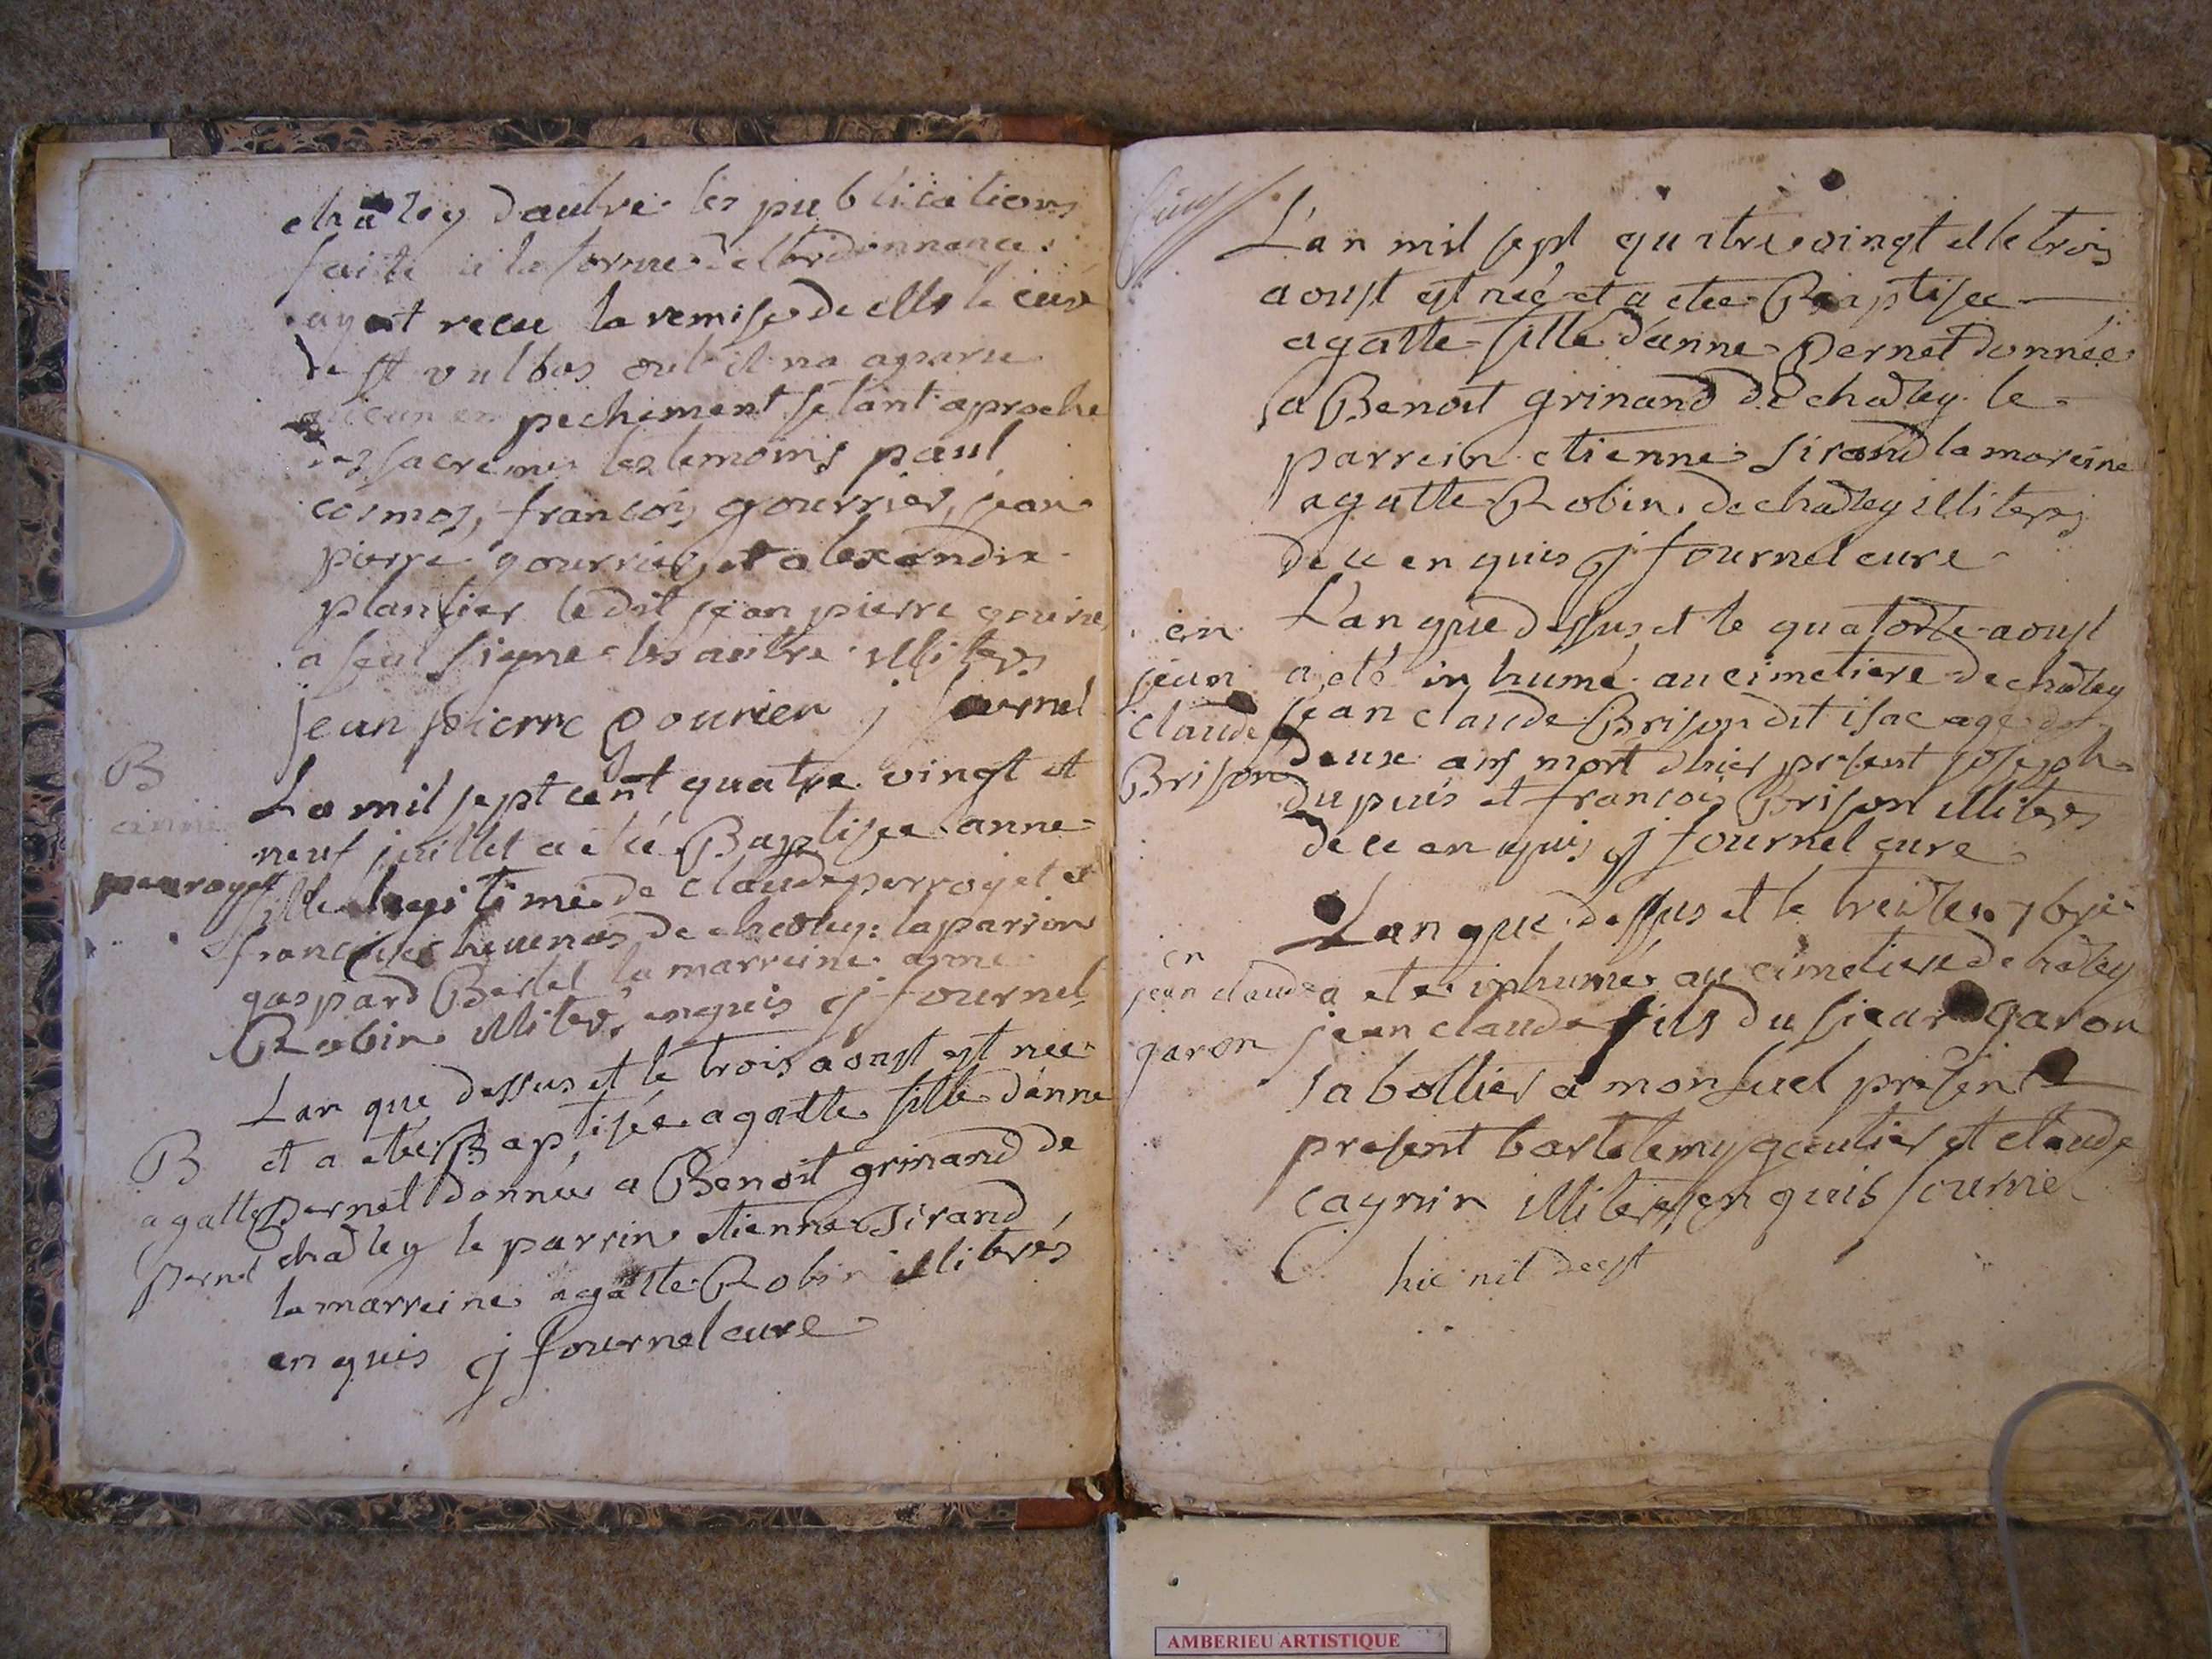 chazey dautre les publications
faite a la forme de lordonnance
ayant recu la remise de mr le curé
de st vulbas ou il na aparu
aucun en pechement setant aproche
des sacremens les temoins paul
cosmos, francois gourrier, jean
pierre gourrier et alexandre
plantier le dit jean pierre gourrie
a seul signe les autre illiteres
jean pierre gourier j fournel
B
anne
perroyet
La mil sept cent quatre vingt et
neuf juillet a eteé Baptisee anne
fille legitime de claude perroyet et
de chazey: la parrin
gaspard Berlet la marreine anne
Robin illiteré enquis j fournel
B
agatte
pernet
Lan que dessus et le trois aoust est neé
et a eteé Baptisée agatte fille danne
pernet donneé a Benoit grinand de
chazley le parrin etienne Sirand
la marreine agatte Robin illiterés
enquis j fournel cure
L'an mil sept quatre vingt et le trois
aoust est neé et a etee Baptisee
agatte fille d'anne pernet donnée
a Benoit grinand de chazley le
parrein etienne Sirand la mareine
agatte Robin de chazley illiteres
de ce enquis j fournel cure
en
jean
claude
Brison
L'an que dessus et le quatorze aoust
a eté in humé au cimetiere de chazley
jean claude Brison dit isac age de
deux ans mort dhier present joseph
dupuis et francois Brison illiteres
de ce enquis j fournel cure
en
jean claude
garon
Lan que dessus et le treidze 7bre
a ete inhumé au cimetiere de chazley
jean claude fils du sieur garon
sabottier a monluel present
present bartelemy gautier et claude
cagnin illiteres enquis fournel
hic nil deest
AMBERIEU ARTISTIQUE